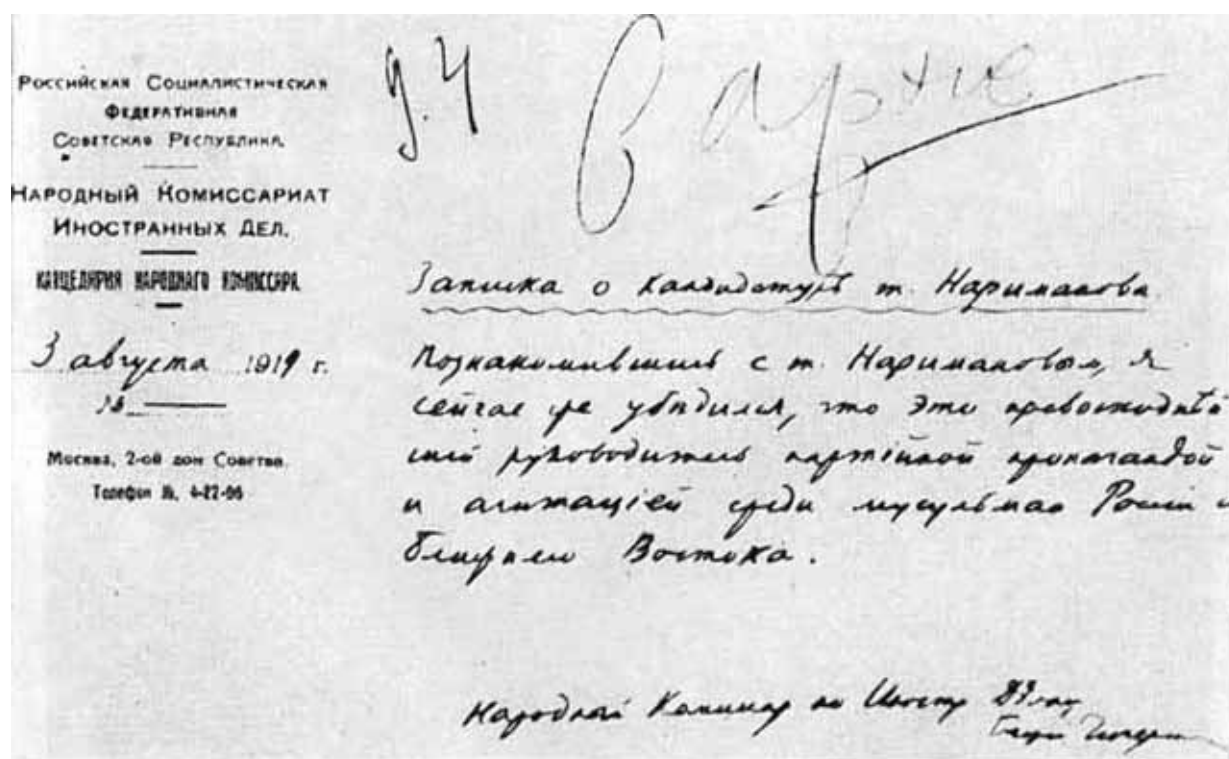 Российская Социалистическая
Федеративная
Советская Республика.
Народный Комиссариат
Иностранных Дел.
КАНЦЕЛЯРИЯ НАРОДНАГО КОМИССАРА.
3 августа 1919 г.
Москва, 2-ой дом Советов.
Телефон №. 4-22-96
Записка о кандидатурѣ т. Нариманова
Познакомившись с т. Наримановым, я
сейчас же убѣдился, что это превосходнѣй
ший руководитель партійной пропагандой
и агитаціей среди мусульман Россіи и
ближняго Востока.
Народный Комиссар по Иностр Дѣлам